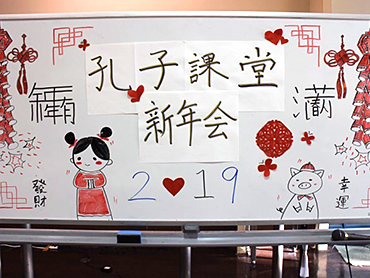 孔子課堂
新年会
滿
2 19
發財
幸運